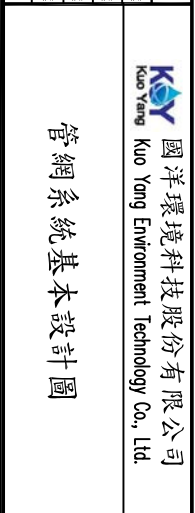 KQY
Kuo Yang
國洋環境科技股份有限公司
Kuo Yang Environment Technology Co., Ltd.
管網系統基本設計圖